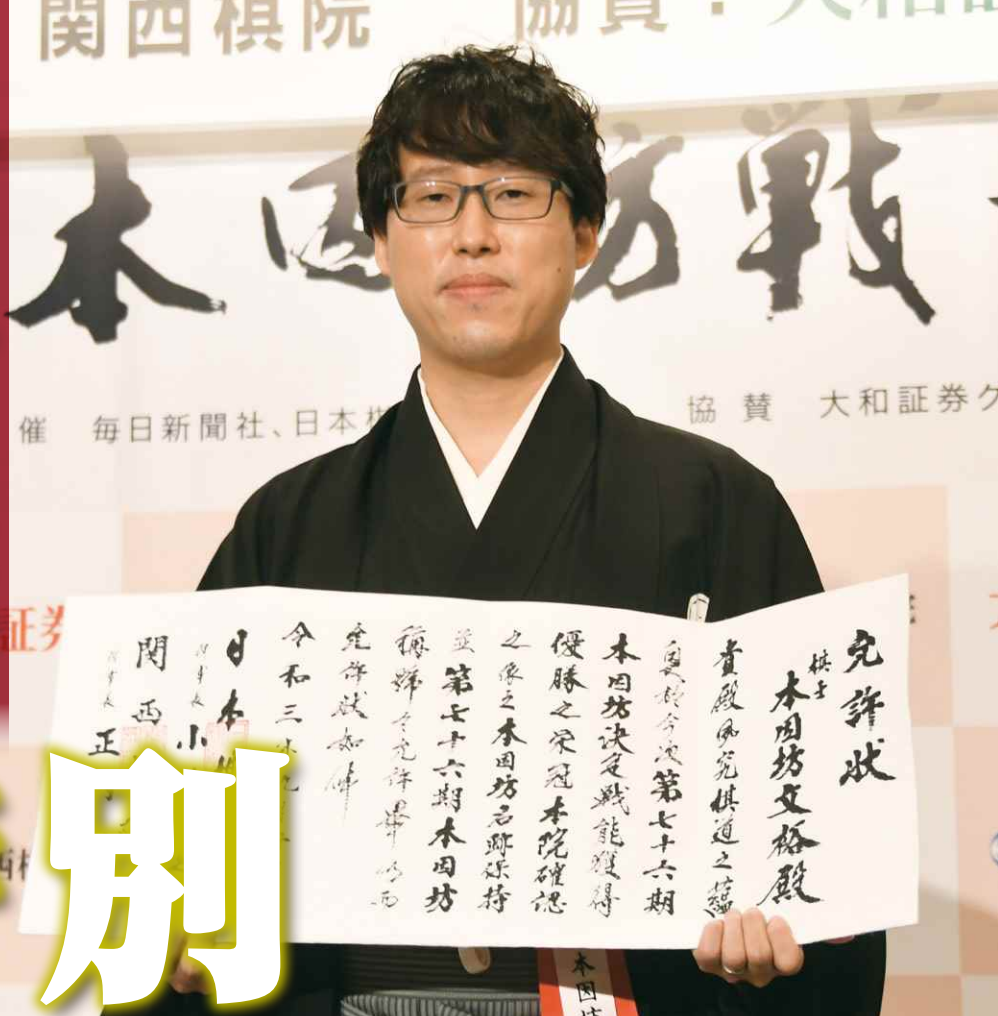 関西棋院 協賛:大和証
本因坊戦
催 毎日新聞社、日本棋
協賛 大和証券グ
証券
免許状
棋士 本因坊文裕殿
貴殿夙究棋道之蘊
奥於今次第七十六期
本因坊決定戦能獲得
優勝之栄冠本院確認
之依之本因坊名跡保持
並第七十六期本因坊
称号令允許畢仍而
免許状如件
令和三年
日本棋
理事長 小
関西
理事長 正
西棋
別
本因坊